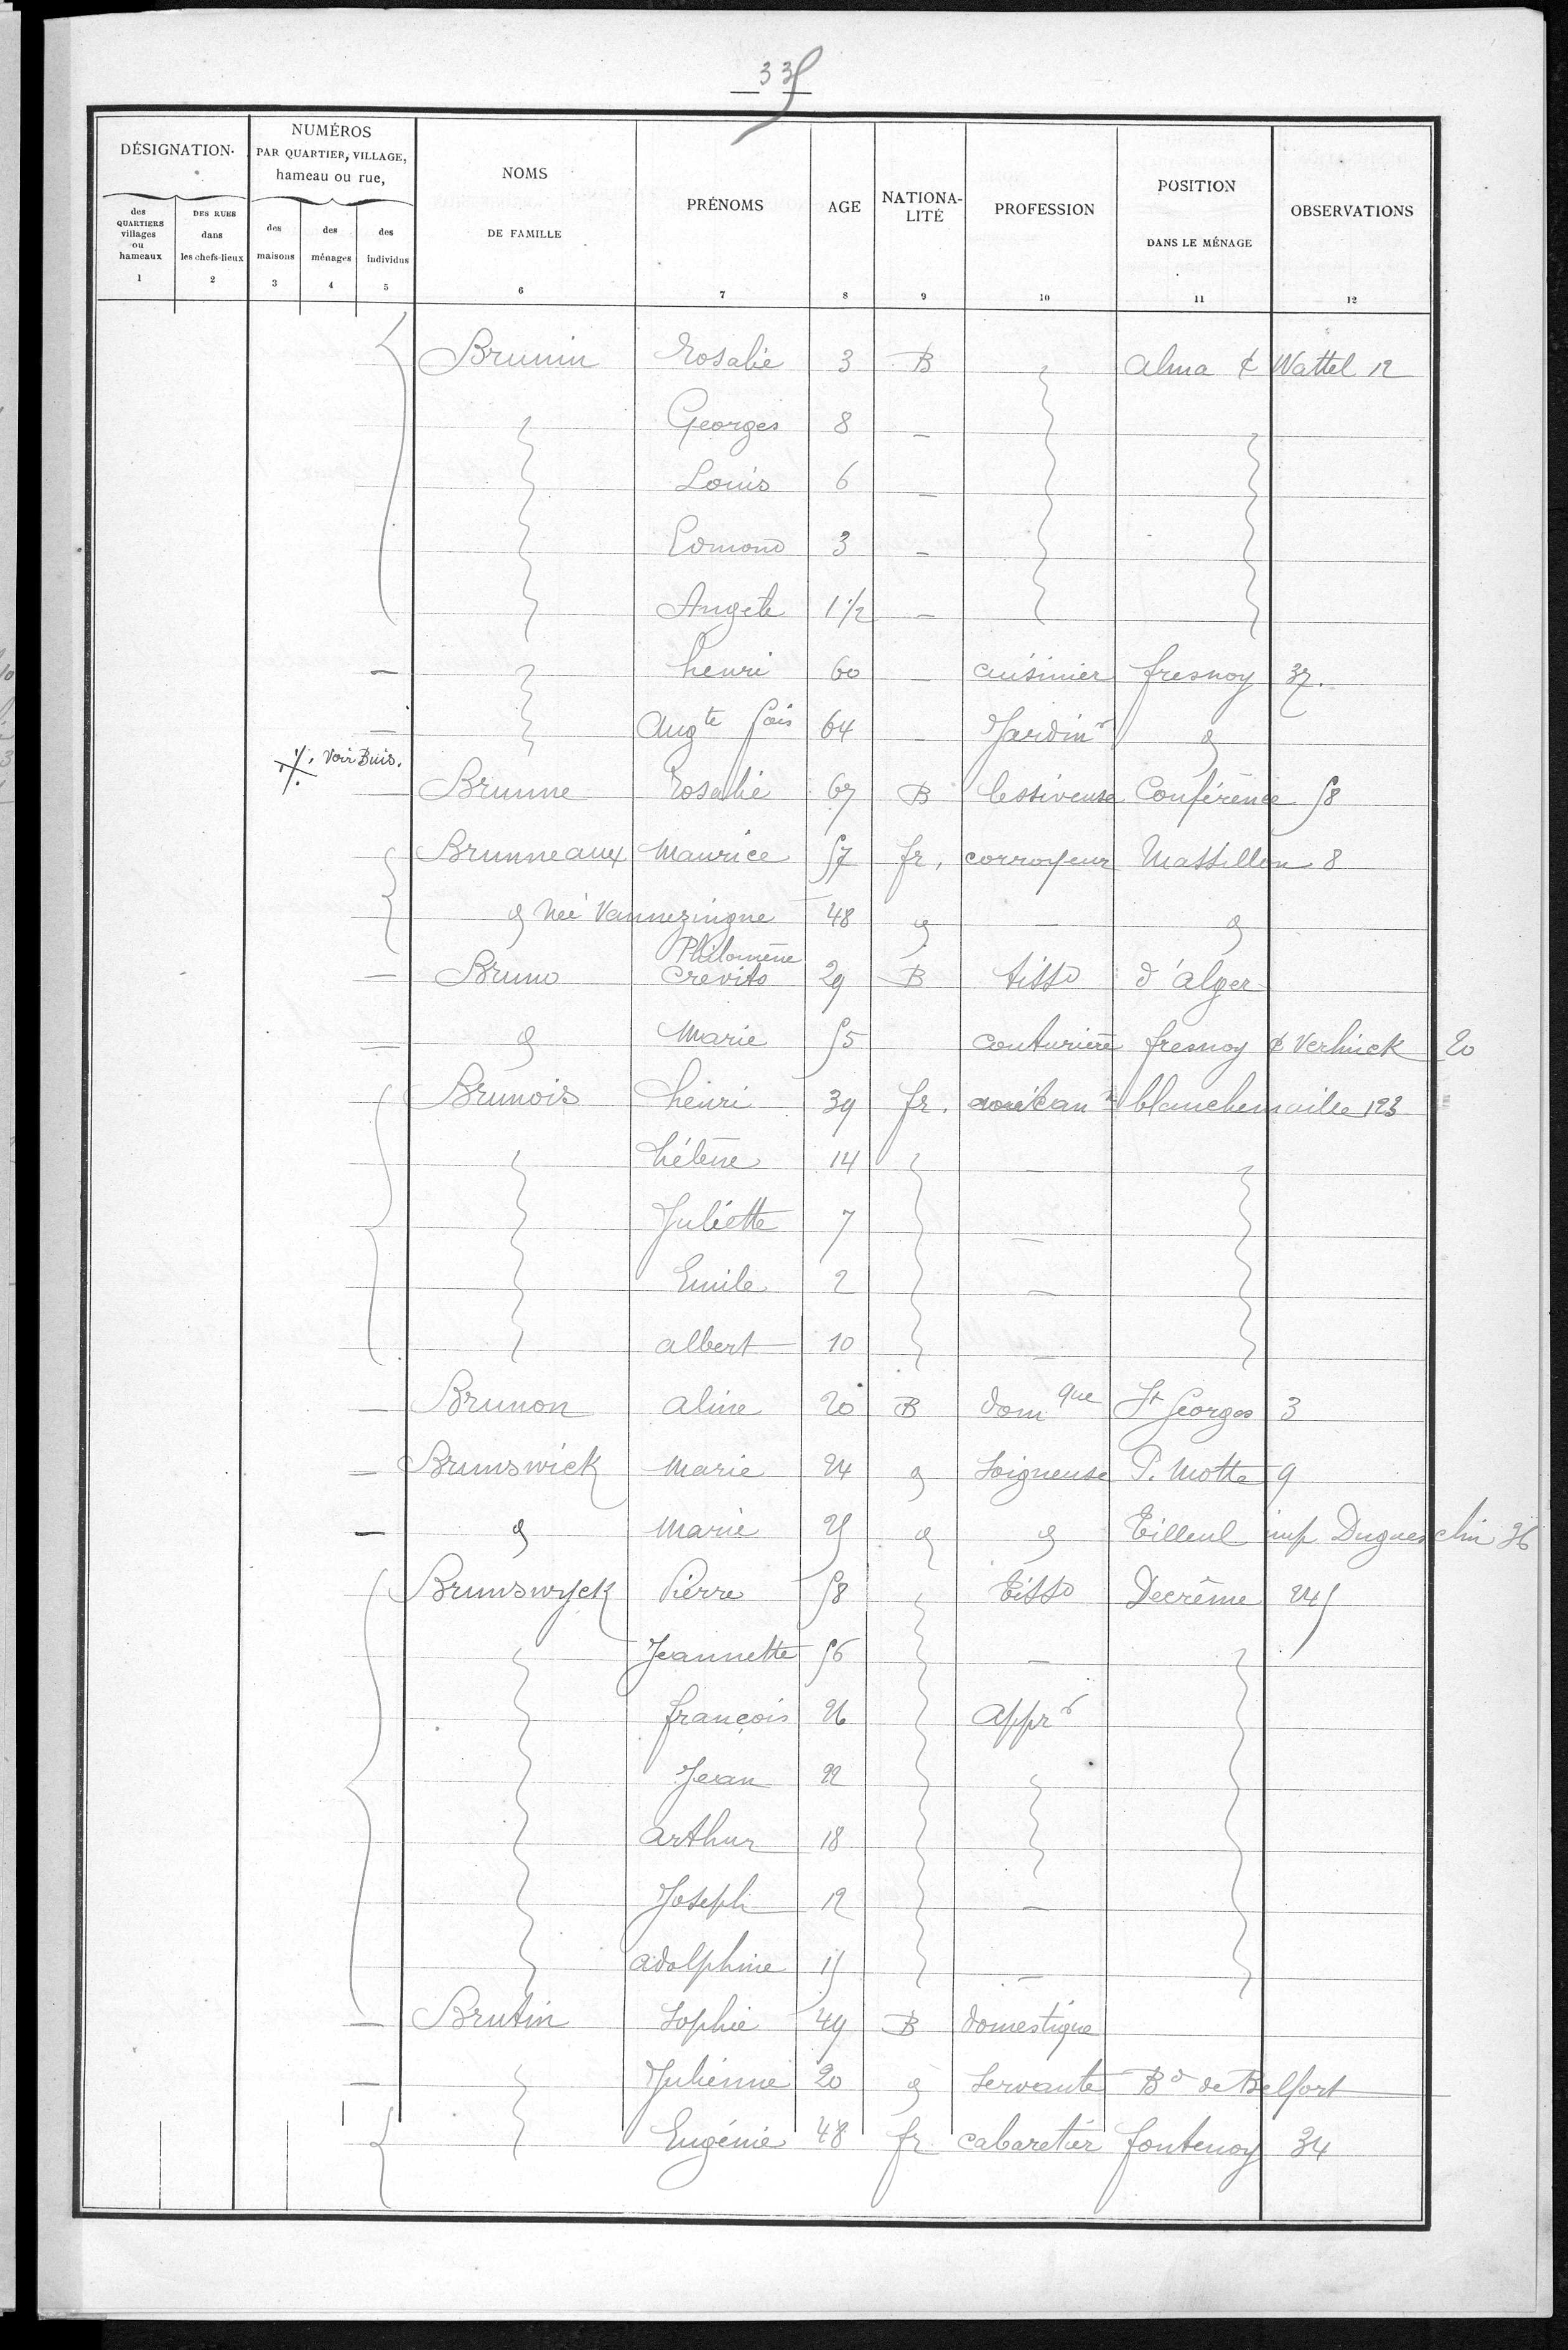 335
DÉSIGNATION. NUMÉROS PAR QUARTIER, VILLAGE, hameau ou rue, NOMS DE FAMILLE PRÉNOMS AGE NATIONALITÉ PROFESSION POSITION DANS LE MÉNAGE OBSERVATIONS
des QUARTIERS villages ou hameaux DES RUES dans les chefs-lieux des maisons des ménages des individus
1 2 3 4 5 6 7 8 9 10 11 12
Brunin Rosalie 3 B Alma & Wattel 12
Georges 8 -
Louis 6 -
Edmond 3 -
Angèle 1 1/2 -
henri 60 - cuisinier fresnoy 37.
Augte fois 64 - Jardinr d
Voir Buis.
Brunne Rosalie 67 B lessiveuse Conférence 58
Brunneaux Maurice 57 fr. corroyeur Massillon 8
d née Vannezingne 48 d - d
Philomène
Bruno Crevits 29 B tissd d'alger
d Marie 55 couturière fresnoy & Verhuck 20
Brunois henri 39 fr. blanchemaille 123
hélène 14 -
Juliette 7 -
Emile 2 -
albert 10 -
Brunon aline 20 B domque St Georges 3
Brunswick Marie 24 d Soigneuse P. Motte 9
d Marie 25 d d Tilleul imp Duguesclin 36
Brunswyck Pierre 58 tissd Decrême 245
Jeannette 56 -
françois 26 Apprr
Jean 22
arthur 18
Joseph 12 -
adolphine 15 -
Brutin Sophie 49 B domestique
Julienne 20 d Servante Bd de Belfort
Eugénie 48 fr cabaretier fontenoy 34